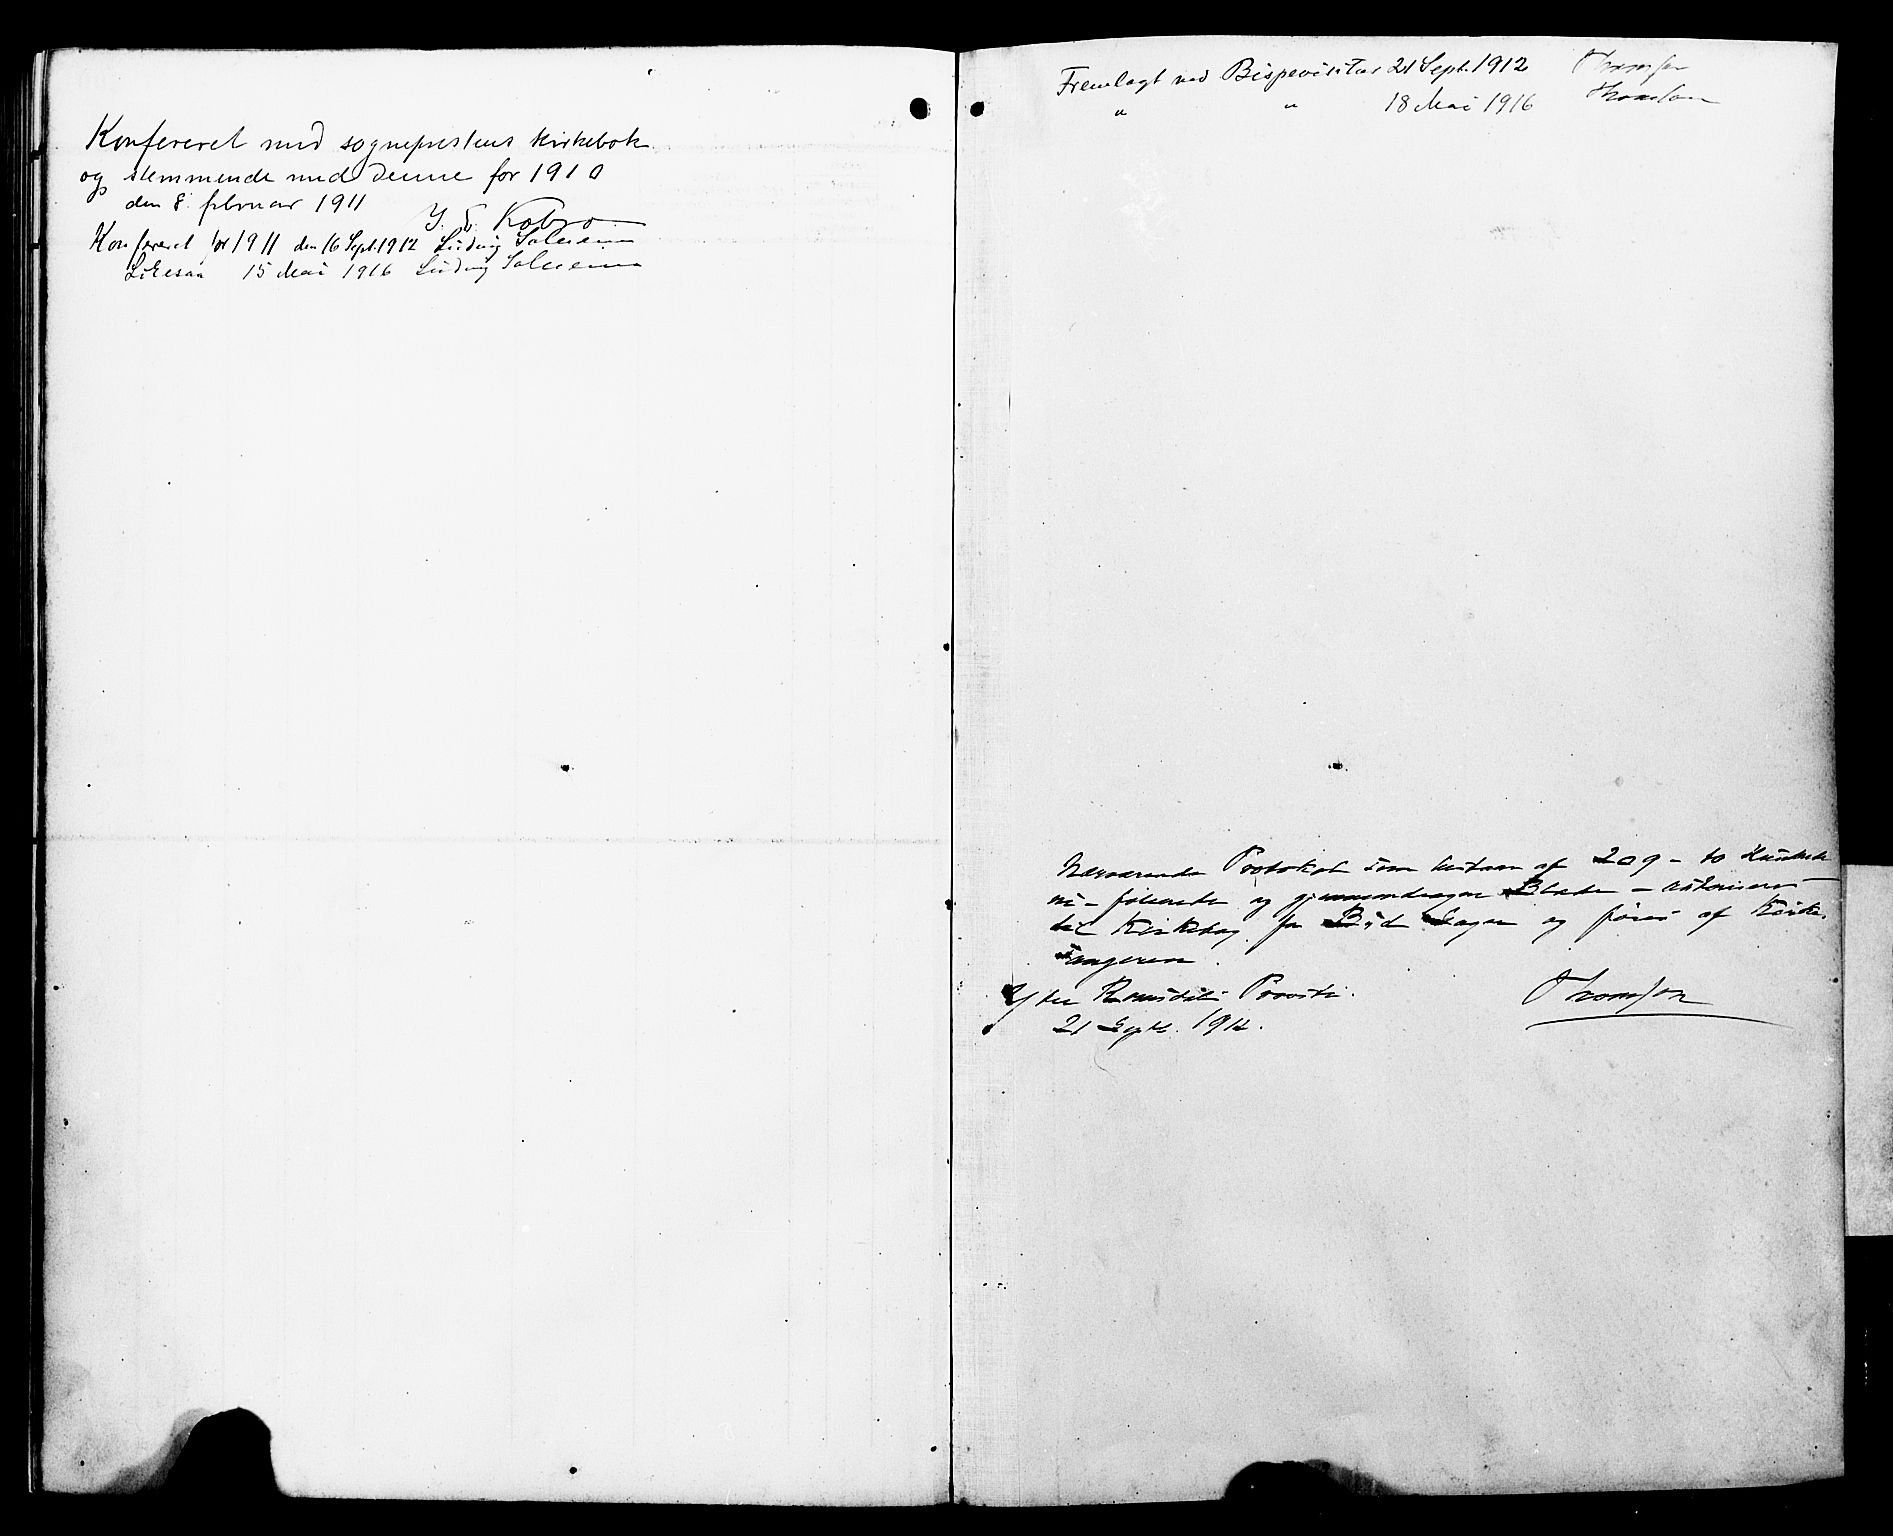 Konfereret med sogneprestens kirkebok
og stemmende med denne for 1910
den 8. februar 1911
J. E. Kobro
Konfereret for 1911 den 16 Sept. 1912 Ludvig Salicani
Likesaa 15 Mai 1916 Ludvig
Fremlagt ved Bispevisitas 21 Sept. 1912 Thomsen
" " 18 Mai 1916 Thomsen
Nærværende Protokol som bestaar af 209 - to Hundrede
ni - folierede og gjennemdragne Blade - autoriseres
til Kirkebog for Bud Sogn og føres af Kirke-
sangeren.
Ytre Romsdals Provsti.
21 Sept. 1912.
Thomsen